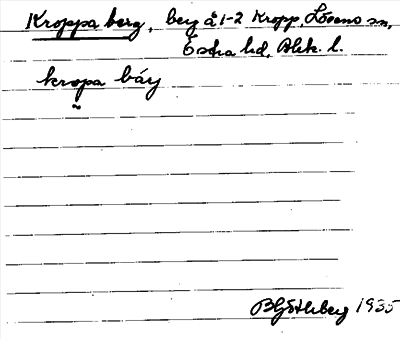 Kroppa berg, berg å 1-2 Kropp, Lösens sn,
Östra hd, Blek. l.
kropa báry
B Göthberg 1935